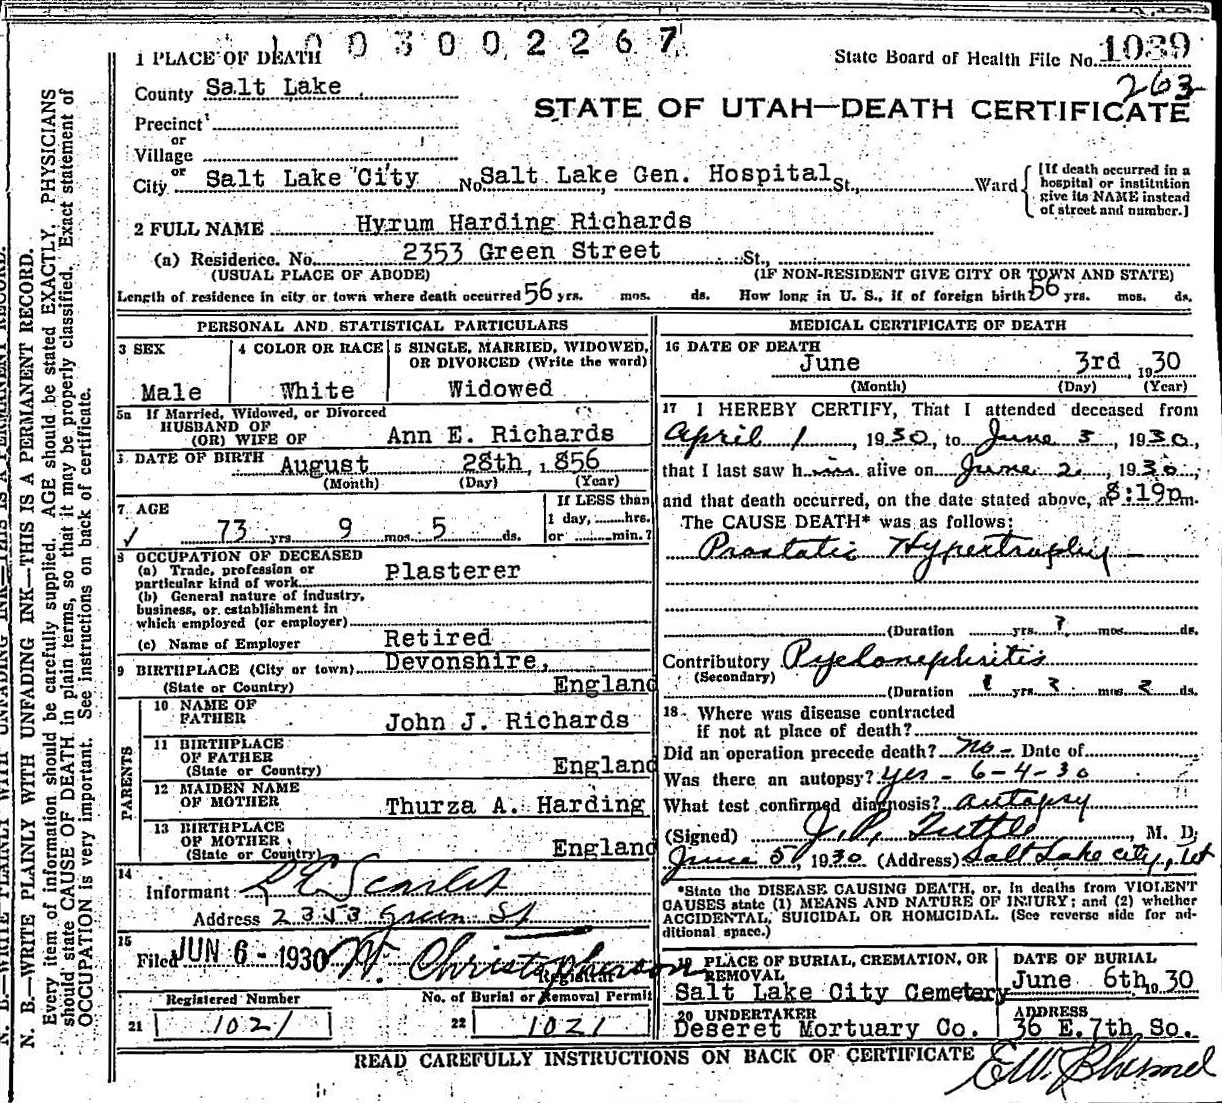 1003002267
State Board of Health File No. 1039
263
STATE OF UTAH—DEATH CERTIFICATE
1 PLACE OF DEATH
County Salt Lake
Precinct
or
Village
or
City Salt Lake City No. Salt Lake Gen. Hospital St., Ward
[If death occurred in a
hospital or institution
give its NAME instead
of street and number.]
2 FULL NAME Hyrum Harding Richards
(a) Residence. No. 2353 Green Street St.,
(USUAL PLACE OF ABODE) (IF NON-RESIDENT GIVE CITY OR TOWN AND STATE)
Length of residence in city or town where death occurred 56 yrs. mos. ds. How long in U. S., if of foreign birth? 56 yrs. mos. ds.
PERSONAL AND STATISTICAL PARTICULARS
3 SEX
Male
4 COLOR OR RACE
White
5 SINGLE, MARRIED, WIDOWED,
OR DIVORCED (Write the word)
Widowed
5a If Married, Widowed, or Divorced
HUSBAND OF
(OR) WIFE OF Ann E. Richards
DATE OF BIRTH August 28th, 1856
(Month) (Day) (Year)
7 AGE
73 yrs 9 mos. 5 ds.
If LESS than
1 day, hrs.
or min.?
8 OCCUPATION OF DECEASED
(a) Trade, profession or
particular kind of work Plasterer
(b) General nature of industry,
business, or establishment in
which employed (or employer)
(c) Name of Employer Retired
9 BIRTHPLACE (City or town) Devonshire,
(State or Country) England
PARENTS
10 NAME OF
FATHER John J. Richards
11 BIRTHPLACE
OF FATHER
(State or Country) England
12 MAIDEN NAME
OF MOTHER Thurza A. Harding
13 BIRTHPLACE
OF MOTHER
(State or Country) England
14
Informant
Address 2353 Green St
15
Filed JUN 6 - 1930 W. Christopherson
Registrar
Registered Number
21 1021
No. of Burial or Removal Permit
22 1021
MEDICAL CERTIFICATE OF DEATH
16 DATE OF DEATH
June 3rd, 1930
(Month) (Day) (Year)
17 I HEREBY CERTIFY, That I attended deceased from
April 1, 1930, to June 3, 1930,
that I last saw him alive on June 2, 1930,
and that death occurred, on the date stated above, at 8:19p m.
The CAUSE DEATH* was as follows:
Prostatic Hypertrophy
(Duration yrs. ? mos. ds.
Contributory Pyelonephritis
(Secondary)
(Duration ? yrs. ? mos. ? ds.
18 Where was disease contracted
if not at place of death?
Did an operation precede death? No - Date of
Was there an autopsy? yes - 6-4-30
What test confirmed diagnosis? autopsy
(Signed) J. P. Tuttle, M. D.
June 5, 1930 (Address) Salt Lake City, Ut
*State the DISEASE CAUSING DEATH, or, in deaths from VIOLENT
CAUSES state (1) MEANS AND NATURE OF INJURY; and (2) whether
ACCIDENTAL, SUICIDAL OR HOMICIDAL. (See reverse side for ad-
ditional space.)
19 PLACE OF BURIAL, CREMATION, OR
REMOVAL
Salt Lake City Cemetery
DATE OF BURIAL
June 6th, 1930
20 UNDERTAKER
Deseret Mortuary Co.
ADDRESS
36 E. 7th So.
READ CAREFULLY INSTRUCTIONS ON BACK OF CERTIFICATE
N. B.—WRITE PLAINLY WITH UNFADING INK—THIS IS A PERMANENT RECORD.
N. B.—WRITE PLAINLY WITH UNFADING INK—THIS IS A PERMANENT RECORD.
Every item of information should be carefully supplied. AGE should be stated EXACTLY. PHYSICIANS
should state CAUSE OF DEATH in plain terms, so that it may be properly classified. Exact statement of
OCCUPATION is very important. See instructions on back of certificate.